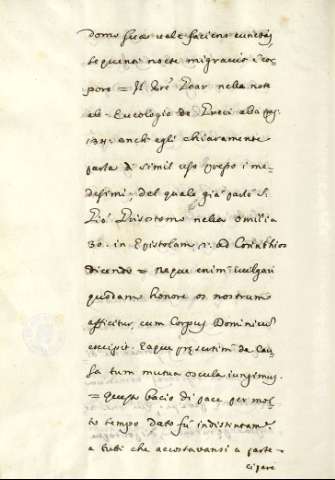 domo sua vale faciens cunctis,
sequenti nocte migravit è cor
pore = Il Goar nella note
ab Eucologio de Greci alla pag.
134. anch' egli chiaramente
parla di simil uso presso i me
desimi, del quale già parlò S.
Gio. Grisostomo nella omilia
30. in Epistolam 2. ad Corinthios
dicendo = neque enim vulgari
quodam honore os nostrum
afficitur, cum Corpus Dominicũ
excipit. Eaque praesertim de cau
sa tum mutua oscula iungimus.
= Questo bacio di pace per mol
to tempo dato fù indistintam.e
a tutti che accostavansi a parte
cipare